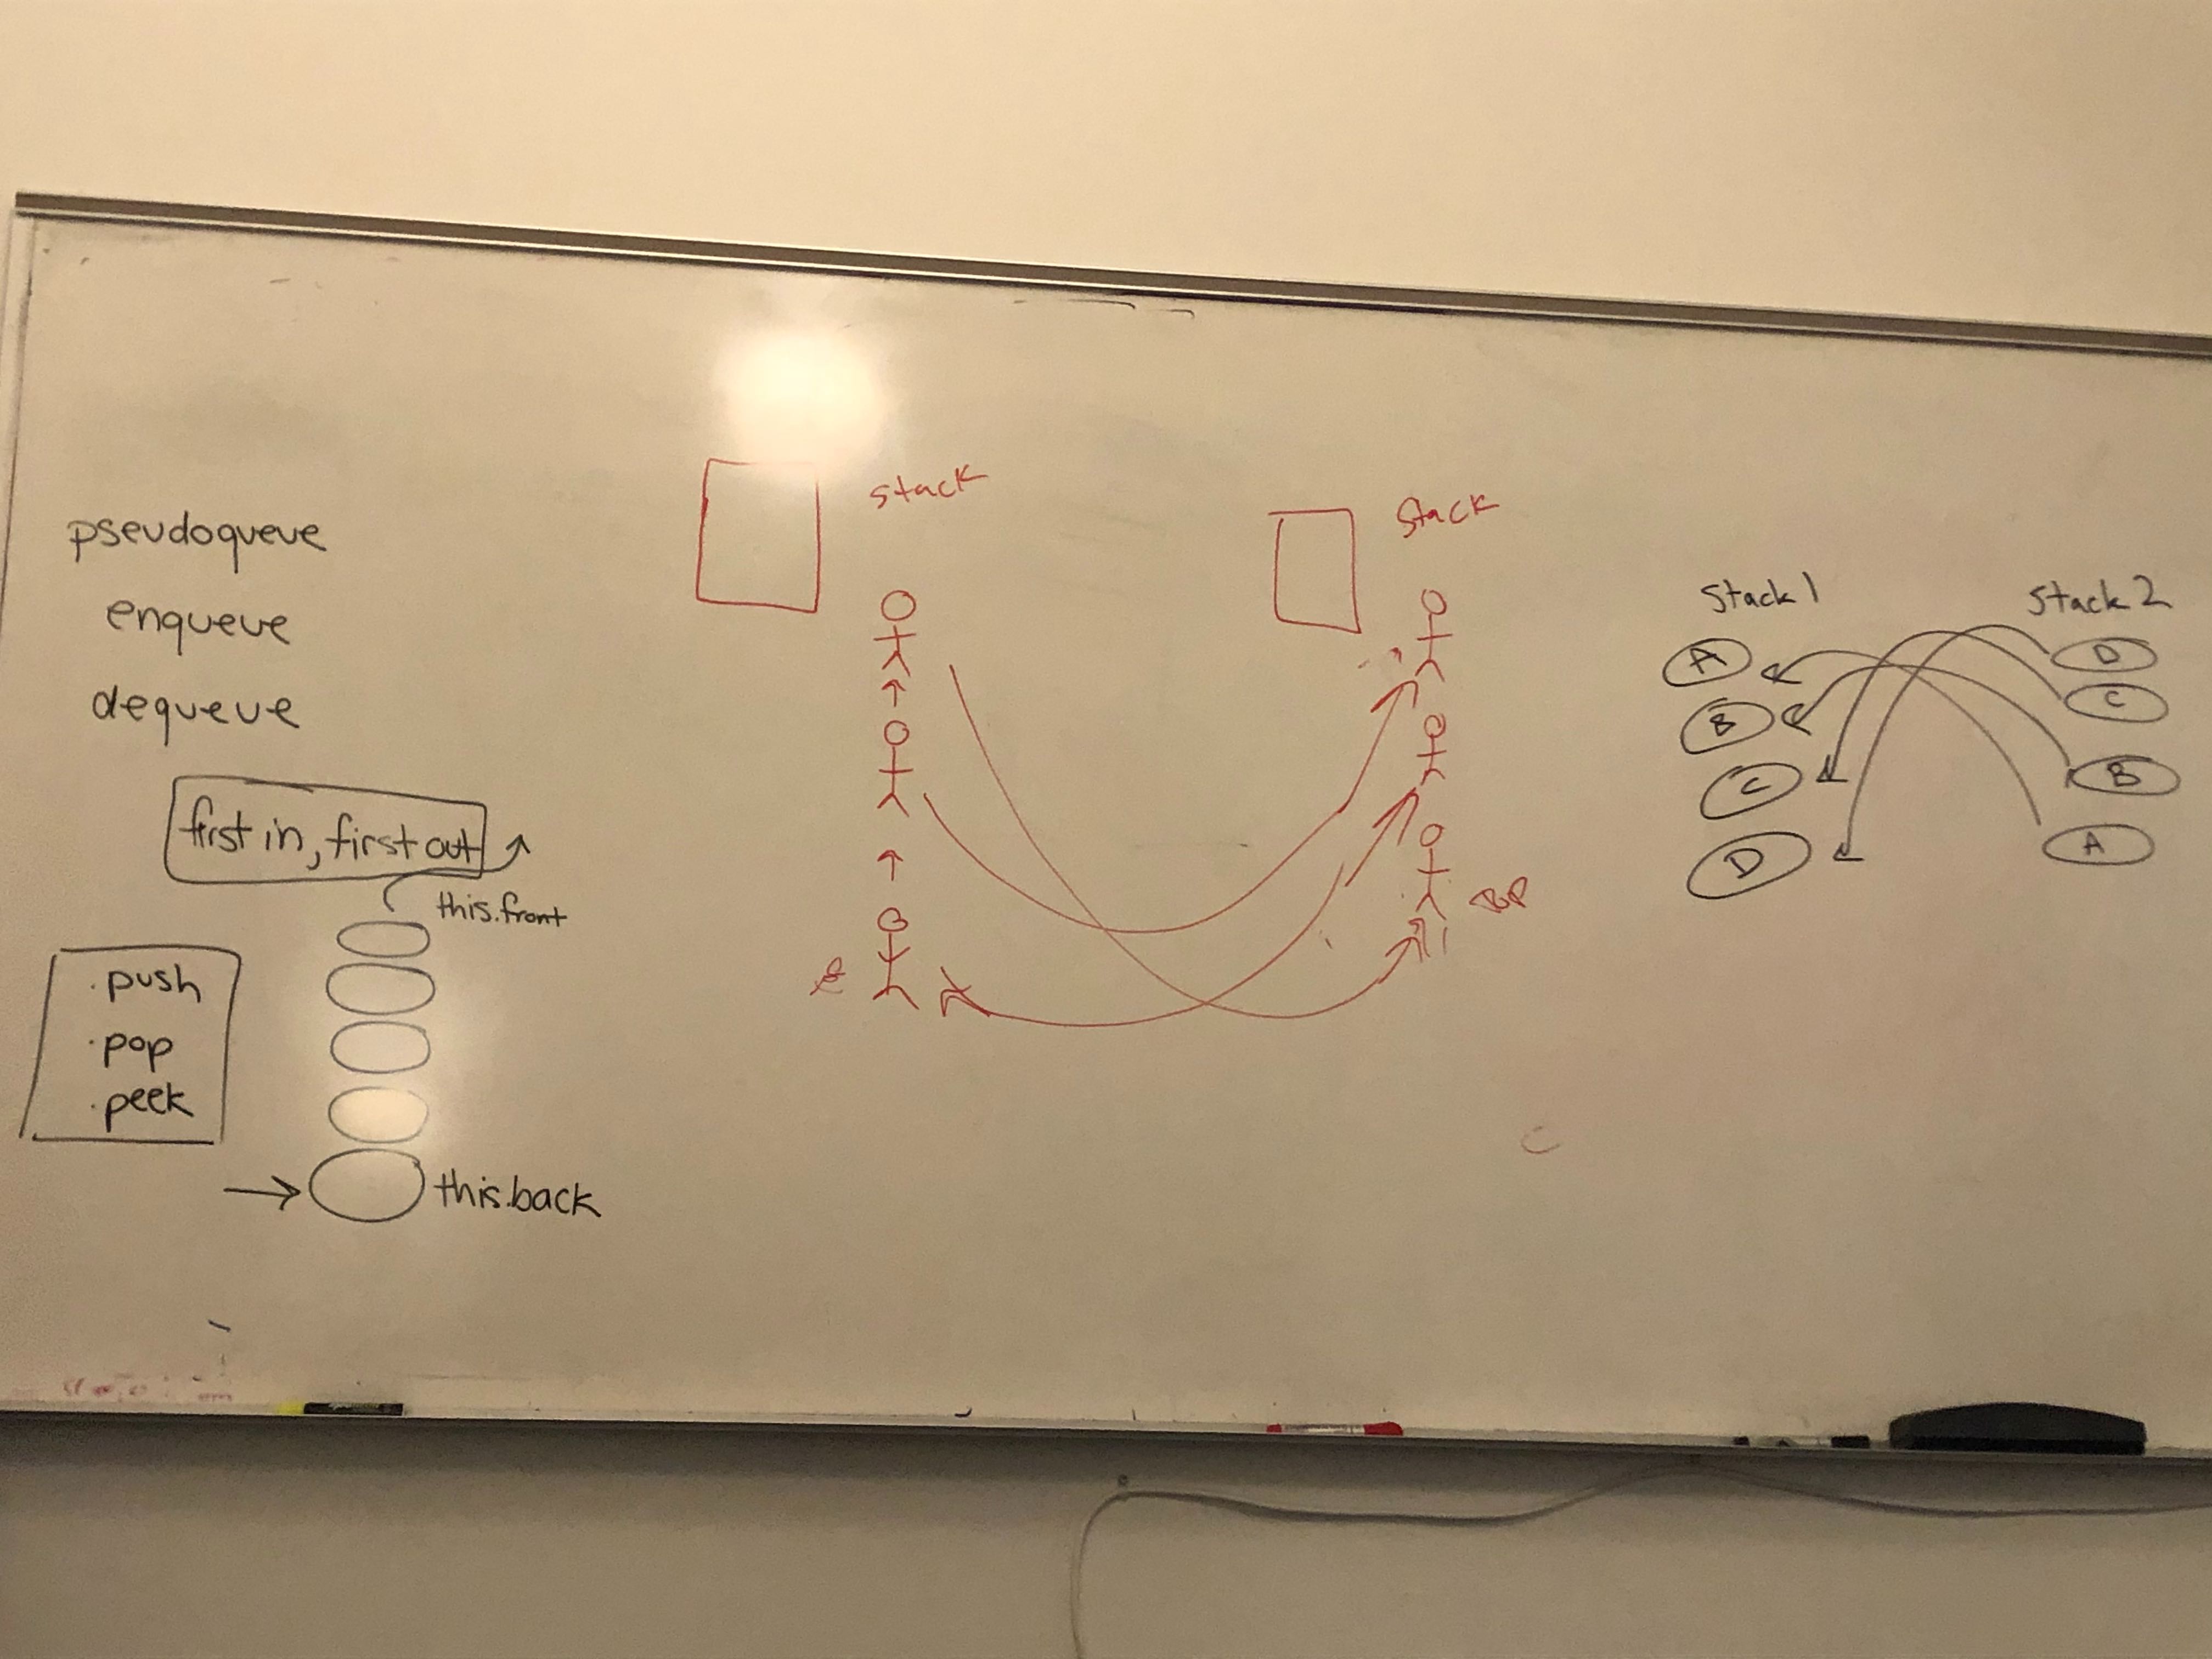 pseudoqueue
enqueue
dequeue
first in, first out
this.front
.push
.pop
.peek
this.back
stack
stack
Stack 1
A
B
C
D
Stack 2
D
C
B
A